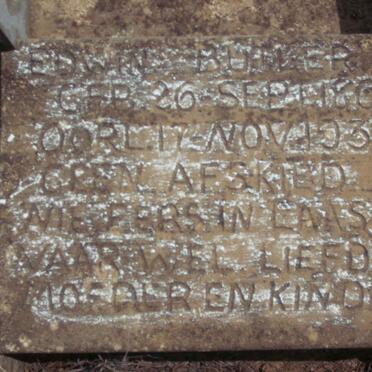 EDWIN BUTLER
GEB. 26 SEPT. 18
OORL. 17 NOV. 193
GEEN AFSKIED
VAARWEL LIEFD
MOEDER EN KIND